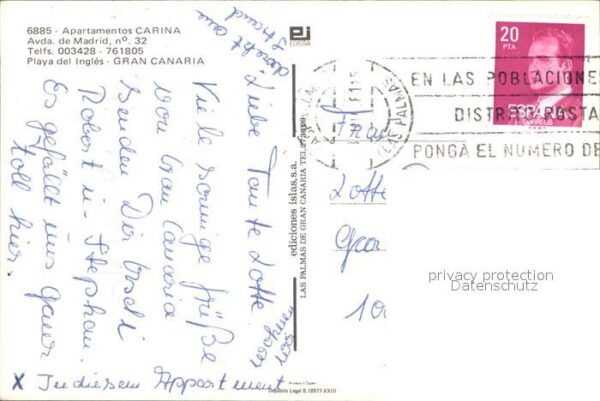 6885 - Apartamentos CARINA
Avda. de Madrid, nº. 32
Telfs. 003428 - 761805
Playa del Inglés - GRAN CANARIA
EDISSA
20
PTA
ESPAÑA
CORREOS
LAS PALMAS
EN LAS POBLACIONE
DISTR POSTA
PONGA EL NUMERO DE
Liebe Tante Lotte
Viele sonnige Grüße
von Gran Canaria
senden Dir Uschi
Robert u. Stephan.
Es gefällt uns ganz
toll hier.
X In diesem Appartement
wohnen
wir
direkt am
Strand
ediciones islas, s.a.
LAS PALMAS DE GRAN CANARIA
Frau
Lotte
10
privacy protection
Datenschutz
Printed in Spain